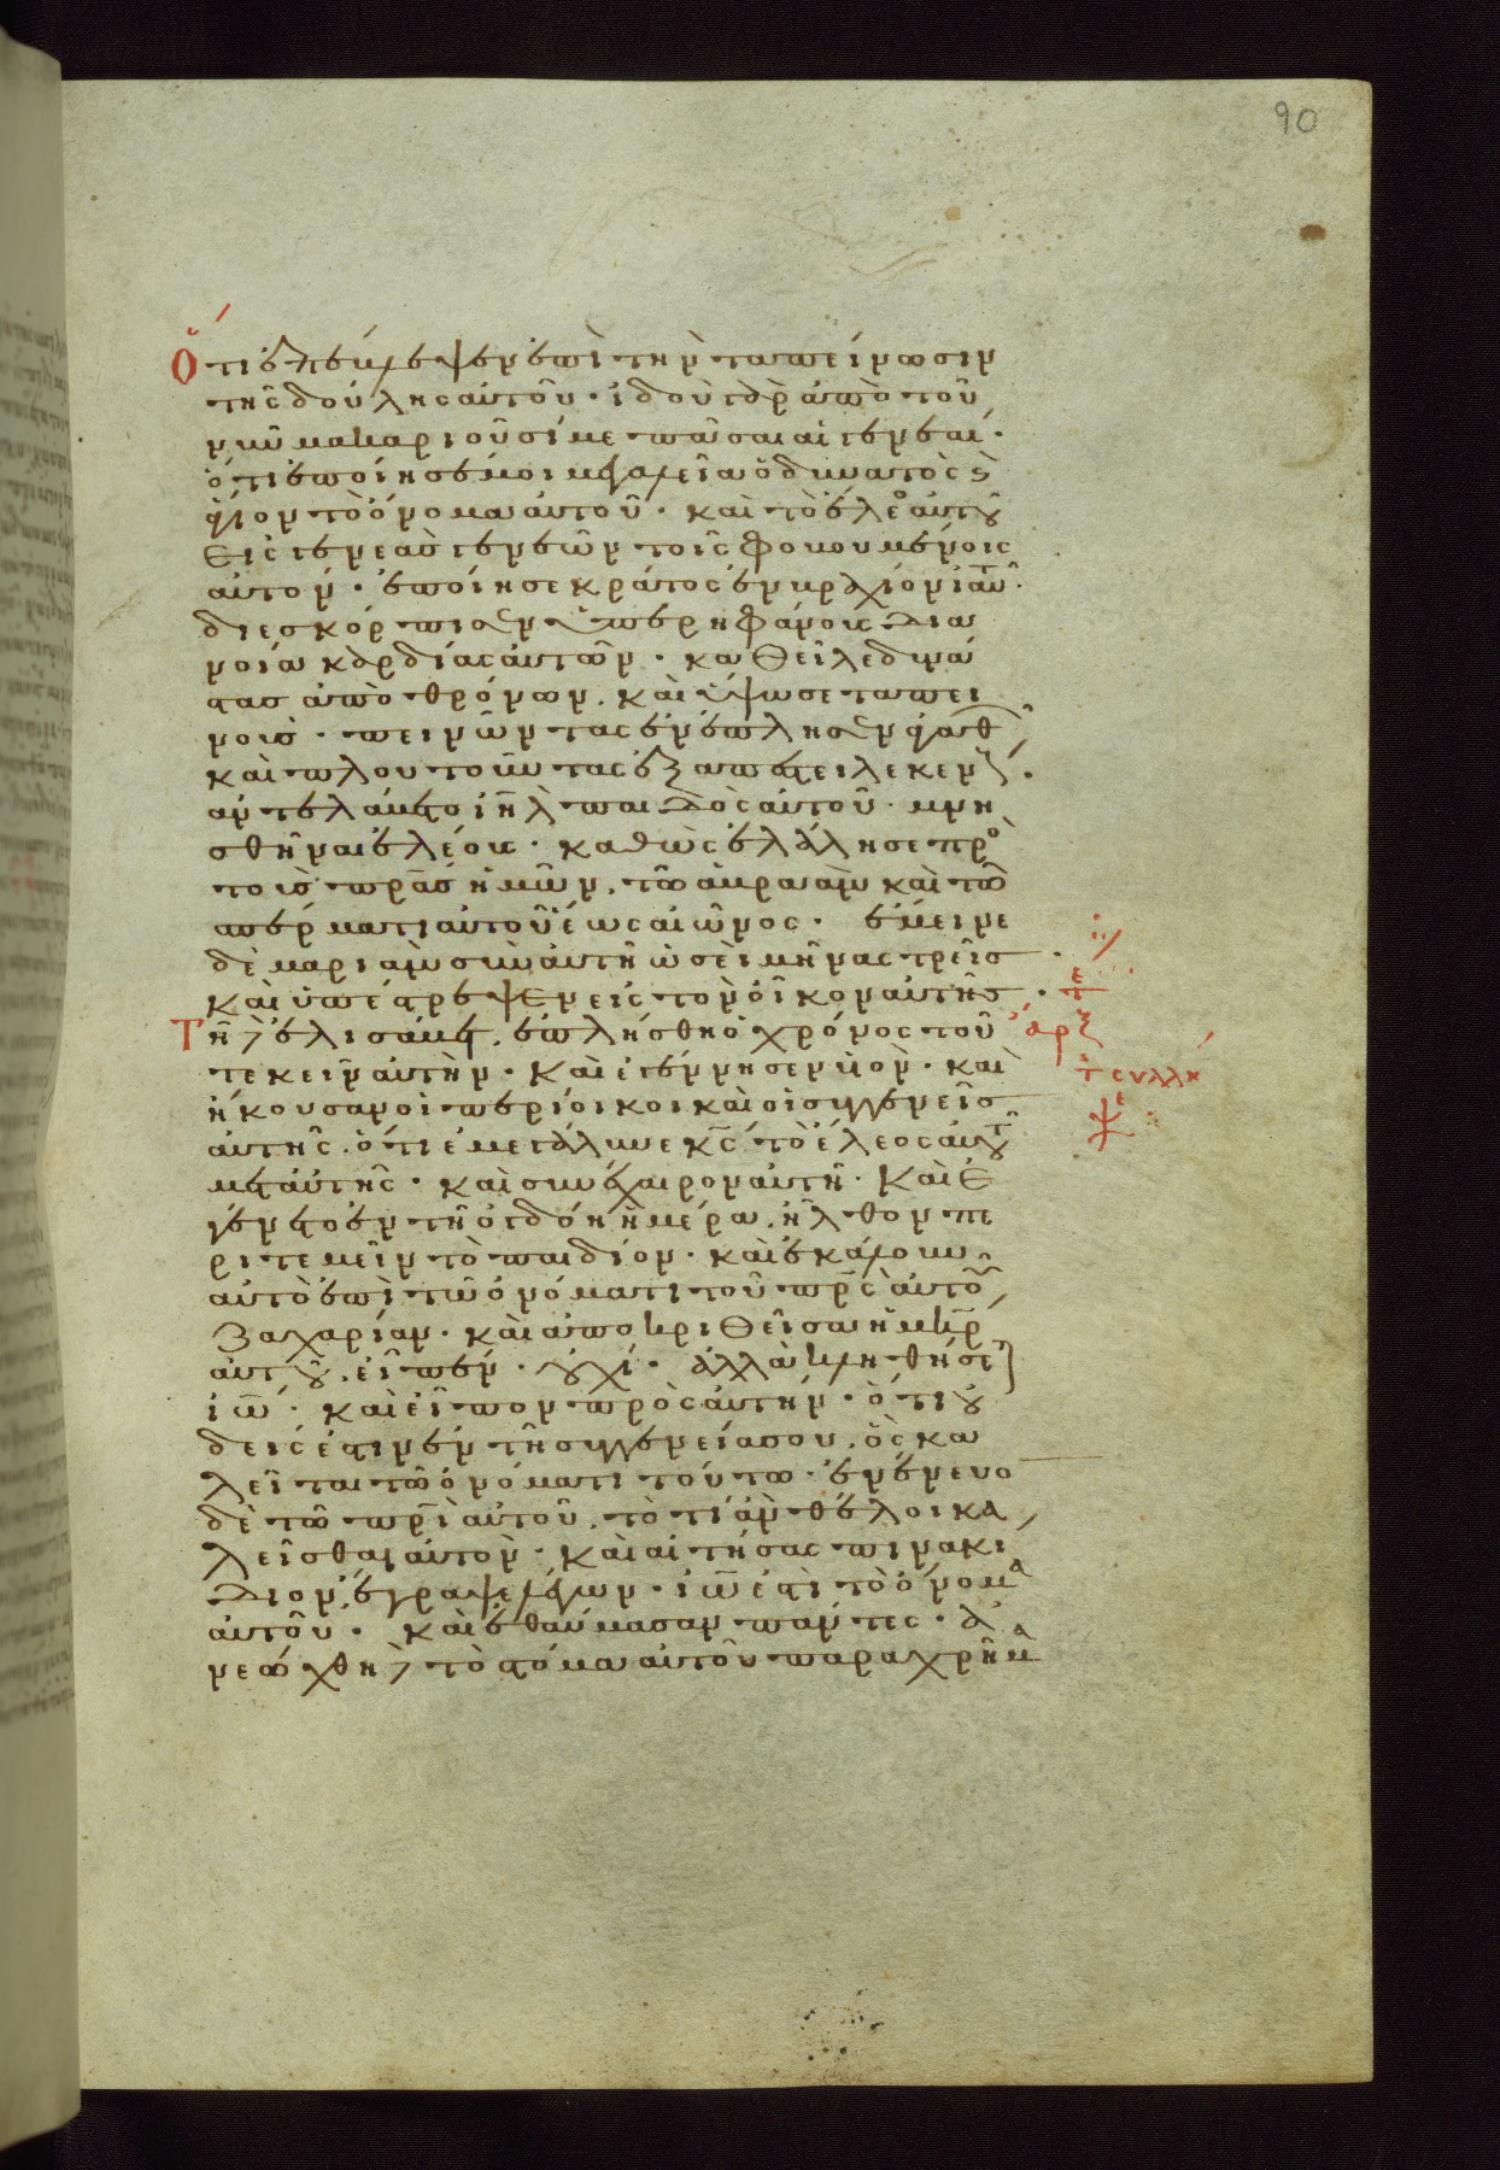 90
Ὅτι ἐπέβλεψεν ἐπὶ τὴν ταπείνωσιν
τῆς δούλης αὐτοῦ· ἰδοὺ γὰρ ἀπὸ τοῦ
νῦν μακαριοῦσί με πᾶσαι αἱ γενεαί·
ὅτι ἐποίησέ μοι μεγαλεῖα ὁ δυνατὸς ϗ
ἅγιον τὸ ὄνομα αὐτοῦ· καὶ τὸ ἔλεος αὐτοῦ
εἰς γενεὰς γενεῶν τοῖς φοβουμένοις
αὐτόν· ἐποίησε κράτος ἐν βραχίονι αὐτοῦ·
διεσκόρπισεν ὑπερηφάνους δια
νοία καρδίας αὐτῶν· καθεῖλε δυνά
στας ἀπὸ θρόνων, καὶ ὕψωσε ταπει
νούς· πεινῶντας ἐνέπλησεν ἀγαθῶν,
καὶ πλουτοῦντας ἐξαπέστειλε κενούς·
ἀντελάβετο ἰηλ παιδὸς αὐτοῦ· μνη
σθῆναι ἐλέους· καθὼς ἐλάλησε πρὸς
τοὺς πρας ἡμῶν, τῶ ἀβραὰμ καὶ τῶ
σπέρματι αὐτοῦ ἕως αἰῶνος· ἔμεινε
δὲ μαριὰμ σὺν αὐτῆ ὡσεὶ μῆνας τρεῖς·
καὶ ὑπέστρεψεν εἰς τὸν οἶκον αὐτῆς·
Τῆ δὲ ἐλισάβετ, ἐπλήσθη ὁ χρόνος τοῦ
τεκεῖν αὐτήν· Καὶ ἐγέννησεν υἱόν· καὶ
ἤκουσαν οἱ περίοικοι καὶ οἱ συγγενεῖς
αὐτῆς, ὅτι ἐμεγάλυνε κς τὸ ἔλεος αὐτοῦ
μετ αὐτῆς· καὶ συνέχαιρον αὐτῆ· Καὶ ἐ
γένετο ἐν τῆ ὀγδόη ἡμέρα, ἦλθον πε
ριτεμεῖν τὸ παιδίον· καὶ ἐκάλουν
αὐτὸ ἐπὶ τῶ ὀνόματι τοῦ πρς αὐτοῦ,
Ζαχαρίαν· καὶ ἀποκριθεῖσα ἡ μηρ
αὐτοῦ, εἶπεν· οὐχί· ἀλλὰ κληθήσεται
ἰω· καὶ εἶπον πρὸς αὐτήν· ὅτι οὐ
δείς ἐστιν ἐν τῆ συγγενεία σου, ὃς κα
λεῖται τῶ ὀνόματι τούτω· ἐνένευο
δὲ τῶ πρι αὐτοῦ, τὸ τί ἂν θέλοι κα
λεῖσθαι αὐτόν· Καὶ αἰτήσας πινακί
διον, ἔγραψε λέγων· ἰω ἐστὶ τὸ ὄνομα
αὐτοῦ· καὶ ἐθαύμασαν πάντες· ἀ
νεώχθη δὲ τὸ στόμα αὐτοῦ παραχρῆμα